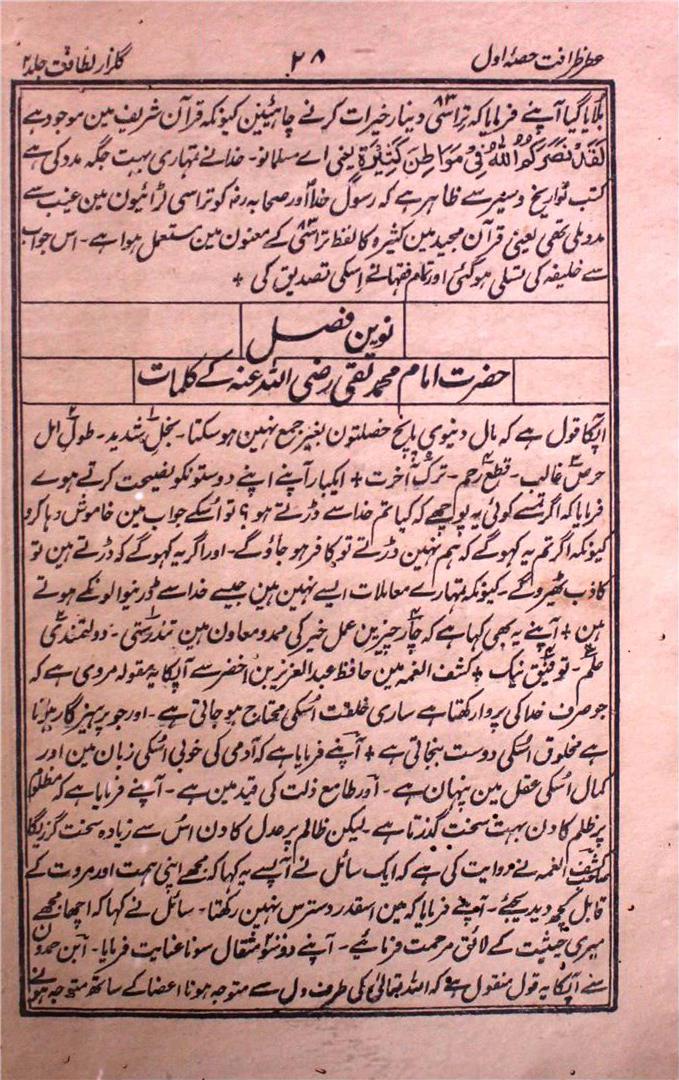 عطر ظرافت حصۂ اول ۲۸ گلزار لطافت جلد ۲
بلایا گیا آپنے فرمایا کہ تراسی ۸۳ دینار خیرات کرنے چاہیئین کیونکہ قرآن شریف مین موجود ہے
لَقَدْ نَصَرَکُمُ اللّٰہُ فِیْ مَوَاطِنَ کَثِیْرَۃٍ یعنی اے مسلمانو۔ خدا نے تمہاری بہت جگہ مدد کی ہے
کتب تواریخ و سیر سے ظاہر ہے کہ رسول خدا اور صحابہ رضہ کو تراسی لڑائیون مین غیب سے
مدد ملی تھی یعنی قرآن مجید مین کثیرہ کا لفظ تراسی ۸۳ کے معنون مین مستعمل ہوا ہے۔ اس جواب
سے خلیفہ کی تسلی ہوگئی اور تمام فقہا نے اسکی تصدیق کی +
نوین فصل
حضرت امام محمد تقی رضی اللہ عنہ کے کلمات
آپکا قول ہے کہ مال دنیوی پانچ خصلتون بغیر جمع نہین ہوسکتا۔ بخل شدید۔ طول امل
حرص غالب۔ قطع رحم۔ ترک آخرت + ایکبار آپنے اپنے دوستونکو نصیحت کرتے ہوے
فرمایا کہ اگر تمسے کوئی یہ پوچھے کہ کیا تم خدا سے ڈرتے ہو؟ تو اُسکے جواب مین خاموش رہا کرو
کیونکہ اگر تم یہ کہوگے کہ ہم نہین ڈرتے تو کافر ہو جاؤگے۔ اور اگر یہ کہوگے کہ ڈرتے ہین تو
کاذب ٹھیروگے۔ کیونکہ تمہارے معاملات ایسے نہین ہین جیسے خدا سے ڈرنیوالونکے ہوتے
ہین + آپنے یہ بھی کہا ہے کہ چار چیزین عمل خیر کی ممد و معاون ہین تندرستی۔ دولتمندی
علم۔ توفیق نیک + کشف الغمہ مین حافظ عبدالعزیز بن اخضر سے آپکا یہ مقولہ مروی ہے کہ
جو صرف خدا کی پروا رکھتا ہے ساری خلقت اُسکی محتاج ہو جاتی ہے۔ اور جو پرہیزگار ہوتا
ہے مخلوق اُسکی دوست بنجاتی ہے + آپنے فرمایا ہے کہ آدمی کی خوبی اُسکی زبان مین اور
کمال اُسکی عقل مین پنہان ہے۔ اور طامع ذلت کی قید مین ہے۔ آپنے فرمایا ہے کہ مظلوم
پر ظلم کا دن بہت سخت گذرتا ہے۔ لیکن ظالم پر عدل کا دن اُس سے زیادہ سخت گزریگا
صاحب کشف الغمہ نے روایت کی ہے کہ ایک سائل نے آپسے یہ کہا کہ مجھے اپنی ہمت اور مروت کے
قابل کچھ دیدیجیے۔ آپنے فرمایا کہ مین اسقدر دسترس نہین رکھتا۔ سائل نے کہا کہ اچھا مجھے
میری حیثیت کے لائق مرحمت فرمائیے۔ آپنے دو سو مثقال سونا عنایت فرمایا۔ ابن حمدون
سے آپکا یہ قول منقول ہے کہ اللہ تعالیٰ کی طرف دل سے متوجہ ہونا اعضا کے ساتھ متوجہ ہونے